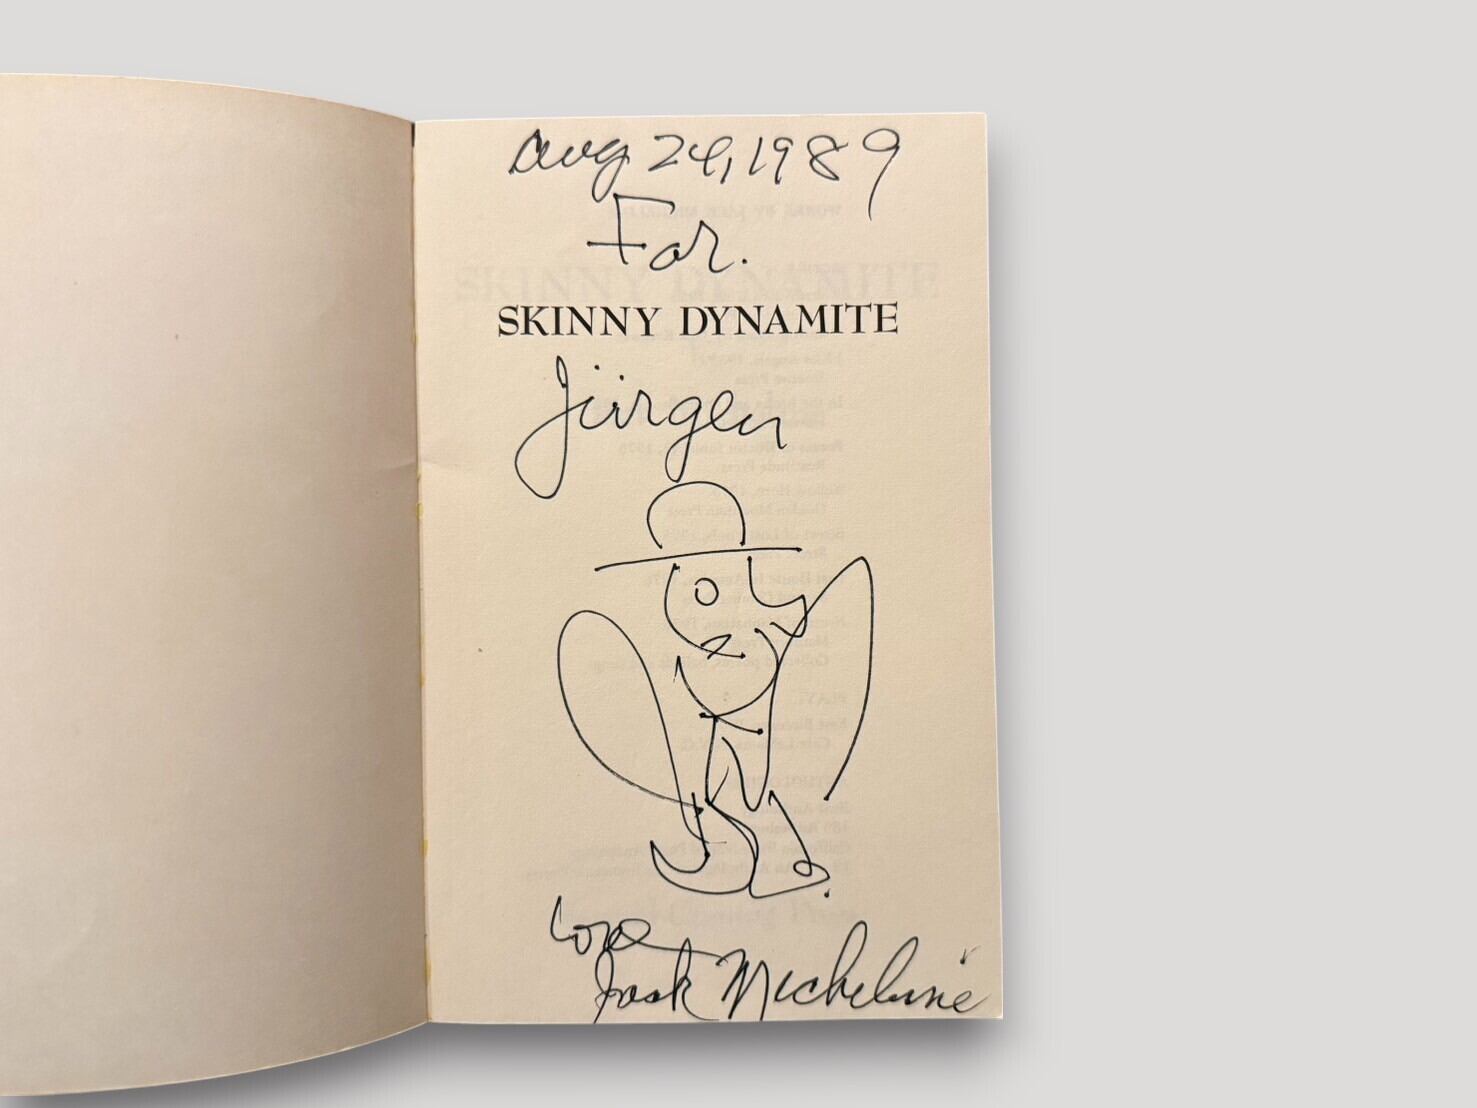 Aug 24, 1989
For.
SKINNY DYNAMITE
Jürgen
Love
Jack Micheline